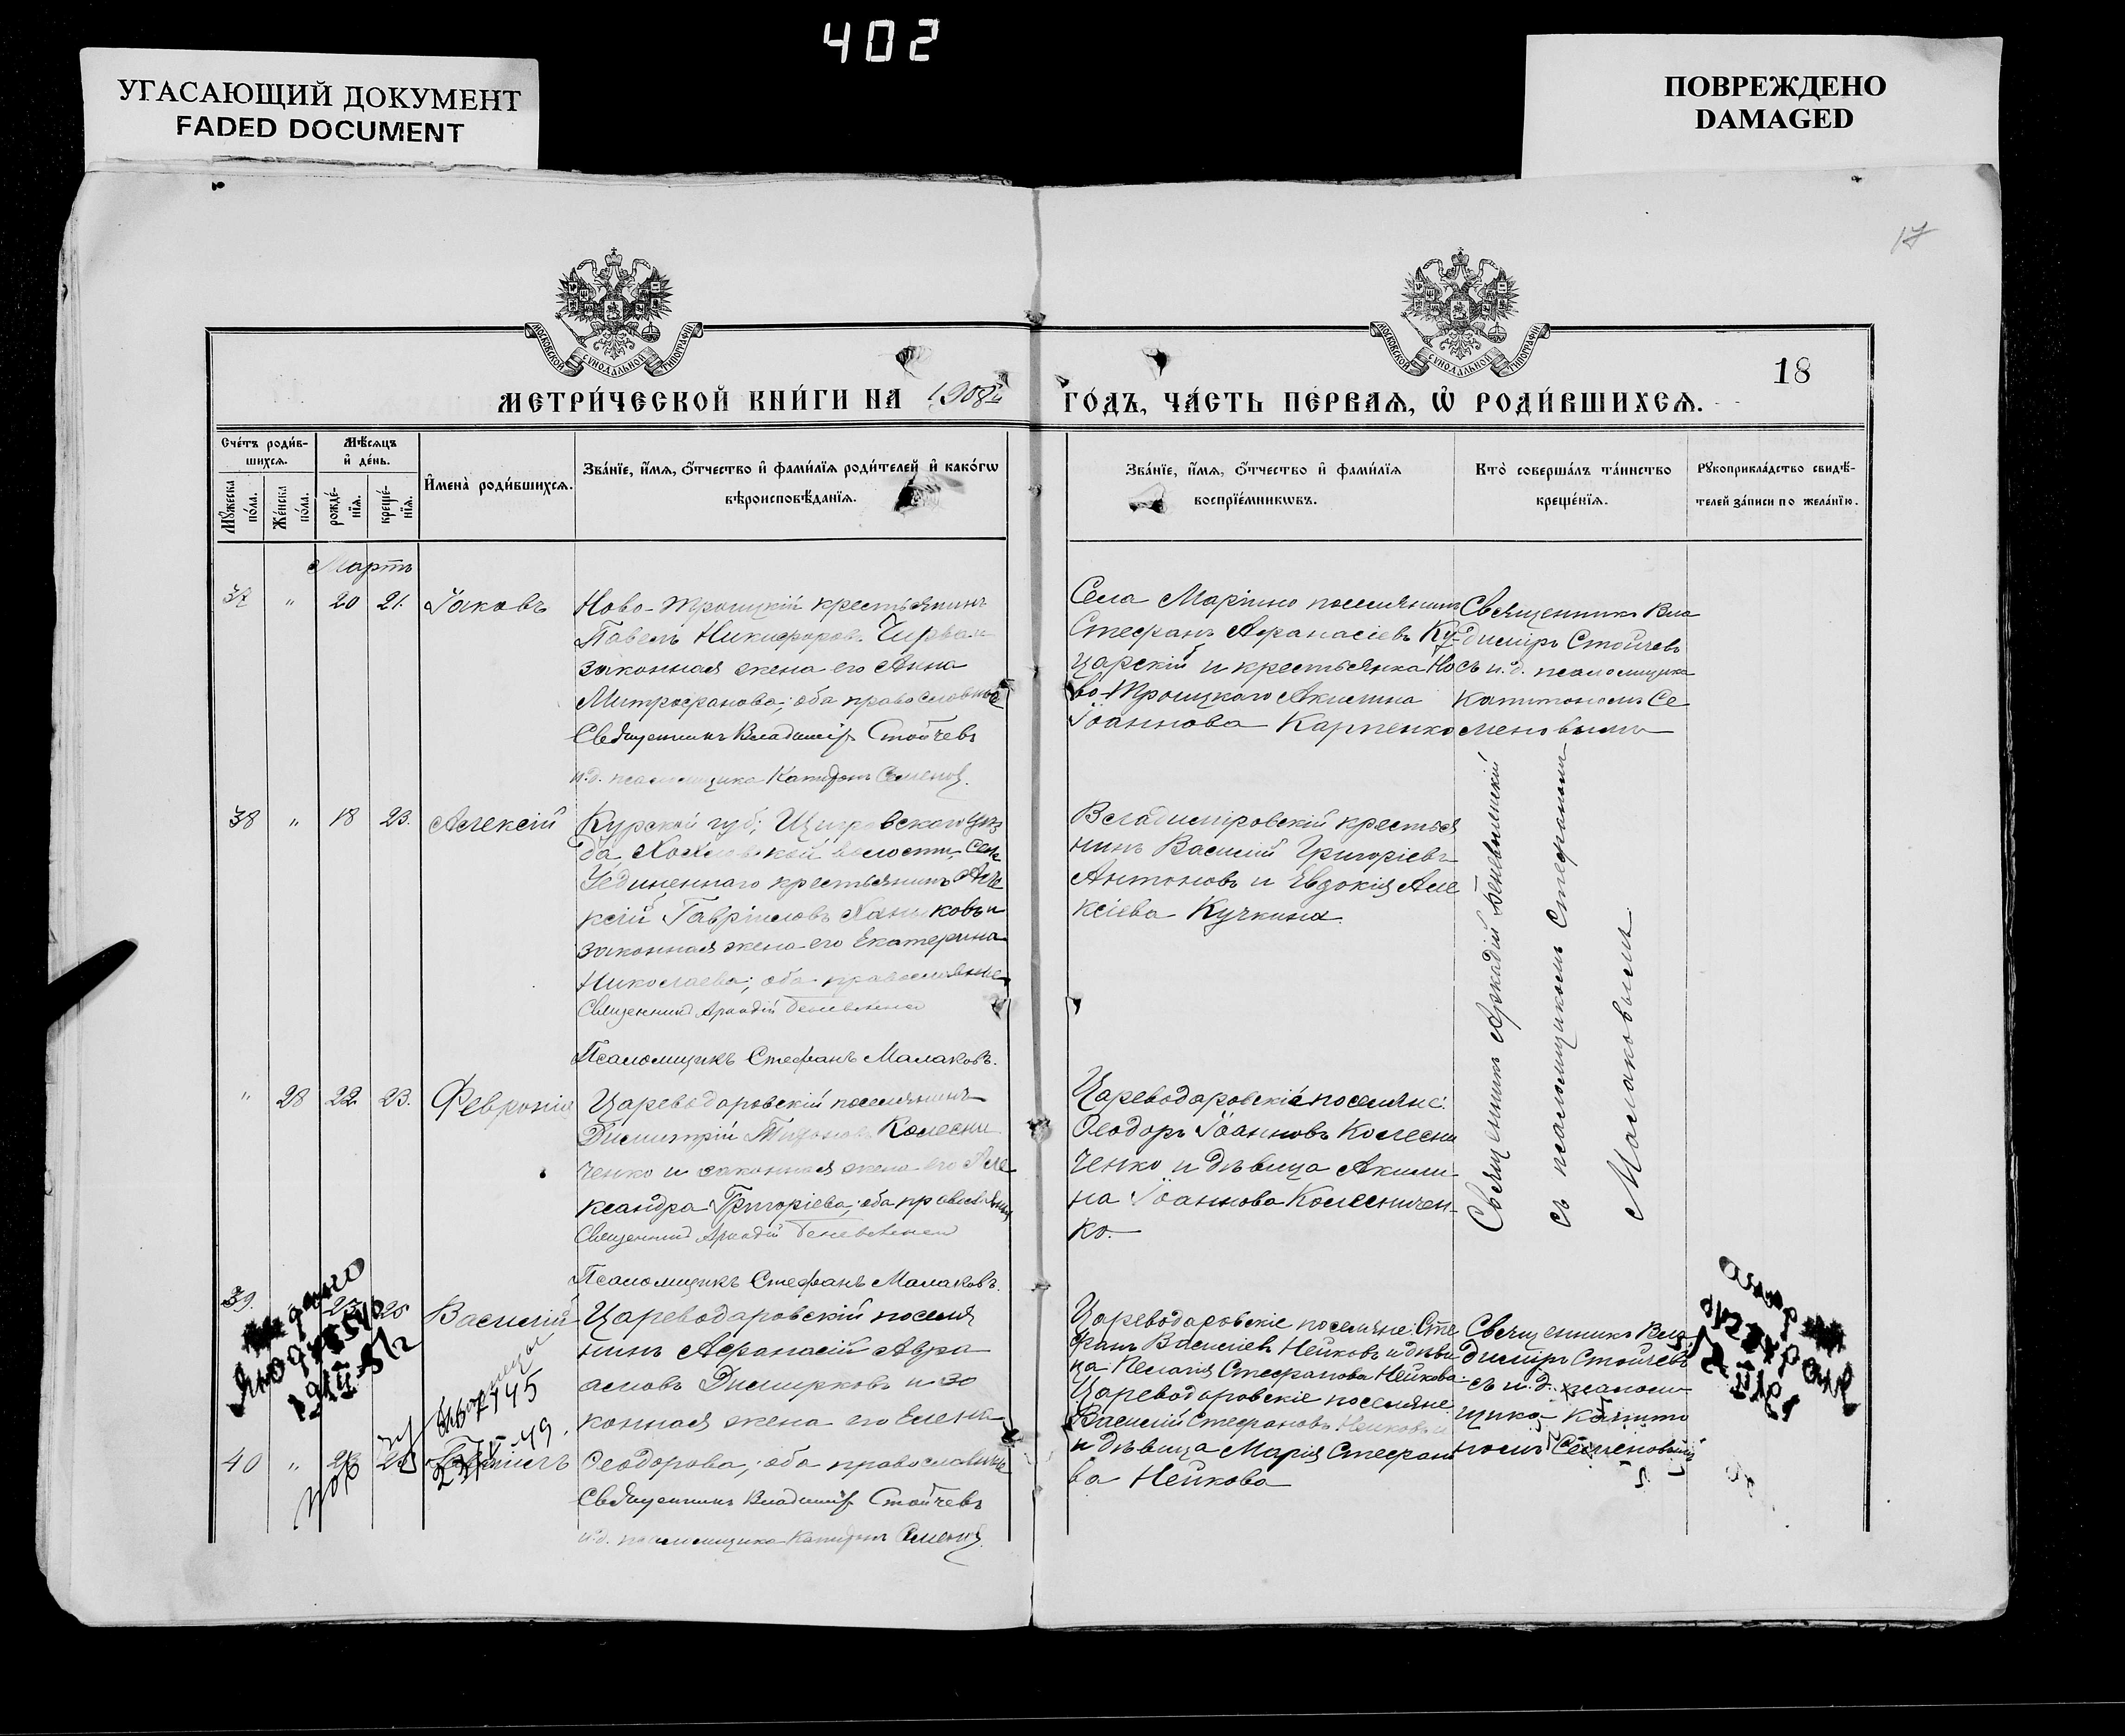 402
УГАСАЮЩИЙ ДОКУМЕНТ
FADED DOCUMENT
ПОВРЕЖДЕНО
DAMAGED
17
МОСКОВСКОЙ СѴНОДАЛЬНОЙ ТИПОГРАФІИ
МОСКОВСКОЙ СѴНОДАЛЬНОЙ ТИПОГРАФІИ
18
МЕТРИ́ЧЕСКОЙ КНИ́ГИ НА 1908й
ГО́ДЪ, ЧА́СТЬ ПЕ́РВАѦ, Ѡ҆ РОДИ́ВШИХСѦ.
Сче́тъ роди́в-
шихсѧ.
Мѣ́сѧцъ
и҆ де́нь.
Мꙋ́жеска по́ла.
Же́нска по́ла.
рожде́-
нїѧ.
креще́-
нїѧ.
И҆мена̀ роди́вшихсѧ.
Зва́нїе, и҆́мѧ, ѻ҆́тчество и҆ фами́лїѧ роди́телей и҆ како́гѡ
вѣроисповѣ́данїѧ.
Зва́нїе, и҆́мѧ, ѻ҆́тчество и҆ фами́лїѧ
воспрїе́мникѡвъ.
Кто̀ соверша́лъ та́инство
креще́нїѧ.
Рꙋкоприкла́дство свидѣ́-
телей за́писи по жела́нїю.
Мартъ
37 " 20 21. Іаковъ
Ново-Троицкій крестьянинъ
Павелъ Никифоровъ
законная жена его Анна
Митрофанова; оба православные
Священникъ Владиміръ Стойчевъ
и.д. псаломщика Капитонъ Семеновъ.
Села Маріино поселянинъ
Стефанъ Аѳанасіевъ Ку-
царскій и крестьянка Но
во-Троицкаго Акилина
Іоаннова Карпенко
Священникъ Вла
диміръ Стойчевъ
съ и.д. псаломщика
Капитономъ Се
меновымъ
38 " 18 23. Алексій
Курской губ; Щигровскаго уѣз
да, волости, села
Уединеннаго крестьянинъ Але
ксій Гавріиловъ и
законная жена его Екатерина
Николаева; оба православные
Священникъ Аркадій Беневоленскій
Псаломщикъ Стефанъ Малаковъ.
Владиміровскій крестья
нинъ Василій Григоріевъ
Антоновъ и Евдокія Але
ксіева Кучкина.
Священникъ Аркадій Беневоленскій
съ псаломщикомъ Стефаномъ
Малаковымъ.
" 28 22 23. Февронія
Цареводаровскій поселянинъ
Димитрій Тихоновъ Колесни
ченко и законная жена его Але
ксандра Григоріева; оба православные
Священникъ Аркадій Беневоленскій
Псаломщикъ Стефанъ Малаковъ.
Цареводаровскіе поселяне:
Ѳеодоръ Іоанновъ Колесни
ченко и дѣвица Акили-
на Іоаннова Колесничен-
ко.
39. 23 25 Василій
Цареводаровскій поселя
нинъ Аѳанасій Авра
амовъ Димирковъ и за
конная жена его Елена
Ѳеодорова; оба православные
Священникъ Владиміръ Стойчевъ
и.д. псаломщика Капитонъ Семеновъ.
Цареводаровскіе поселяне: Сте
фанъ Василіевъ Нейковъ и дѣви
ца Пелагія Стефанова Нейкова.
Цареводаровскіе поселяне:
Василій Стефановъ Нейковъ
и дѣвица Марія Стефано
ва Нейкова
Священникъ Вла
диміръ Стойчевъ
съ и.д. псалом
щика Капито
номъ Семеновымъ
40 " 23